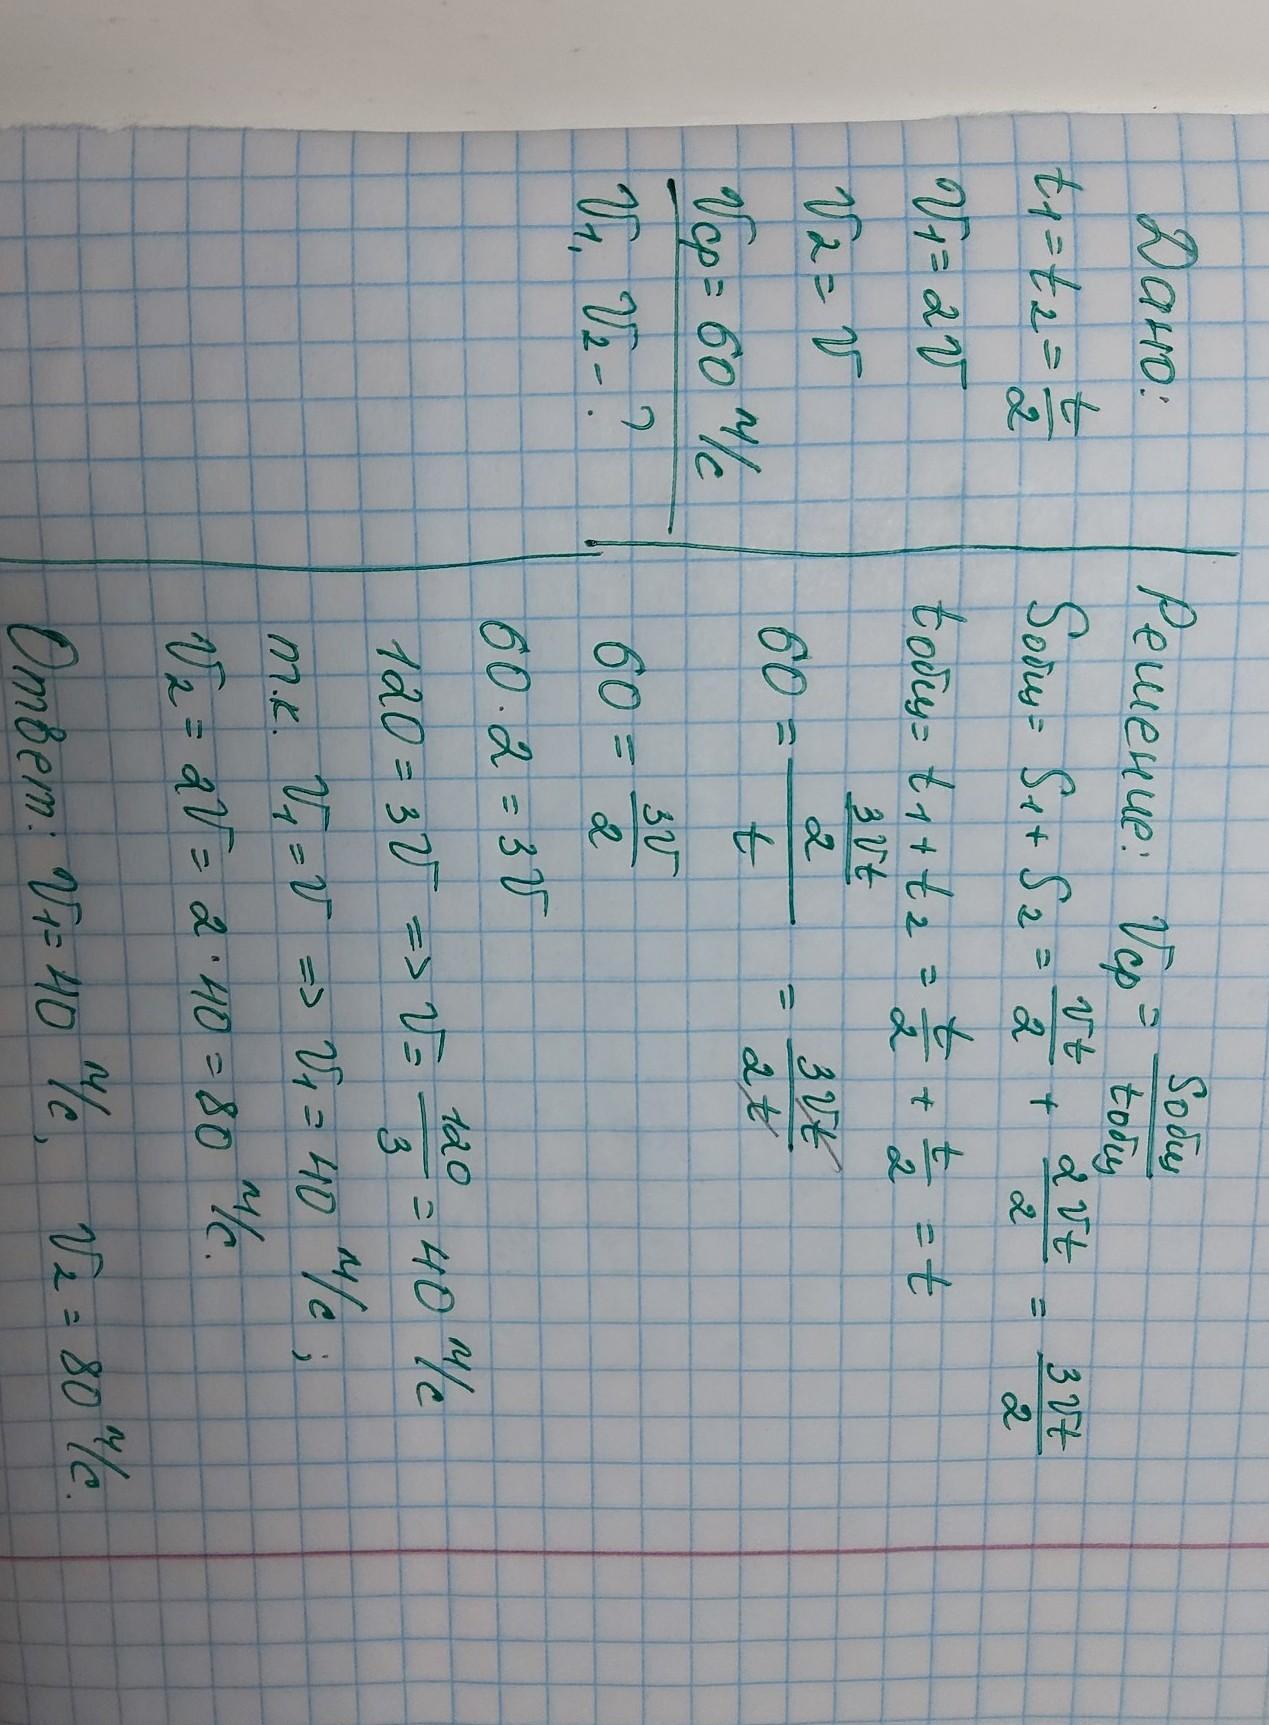 Дано:
t1 = t2 = t/2
V1 = 2V
V2 = V
Vср = 60 м/с
V1, V2 - ?
Решение: Vср = Sобщ/tобщ
Sобщ = S1 + S2 = Vt/2 + 2Vt/2 = 3Vt/2
tобщ = t1 + t2 = t/2 + t/2 = t
60 = (3Vt/2)/t = 3Vt/2t
60 = 3V/2
60 · 2 = 3V
120 = 3V => V = 120/3 = 40 м/с
т.к. V1 = V => V1 = 40 м/с;
V2 = 2V = 2 · 40 = 80 м/с.
Ответ: V1 = 40 м/с, V2 = 80 м/с.